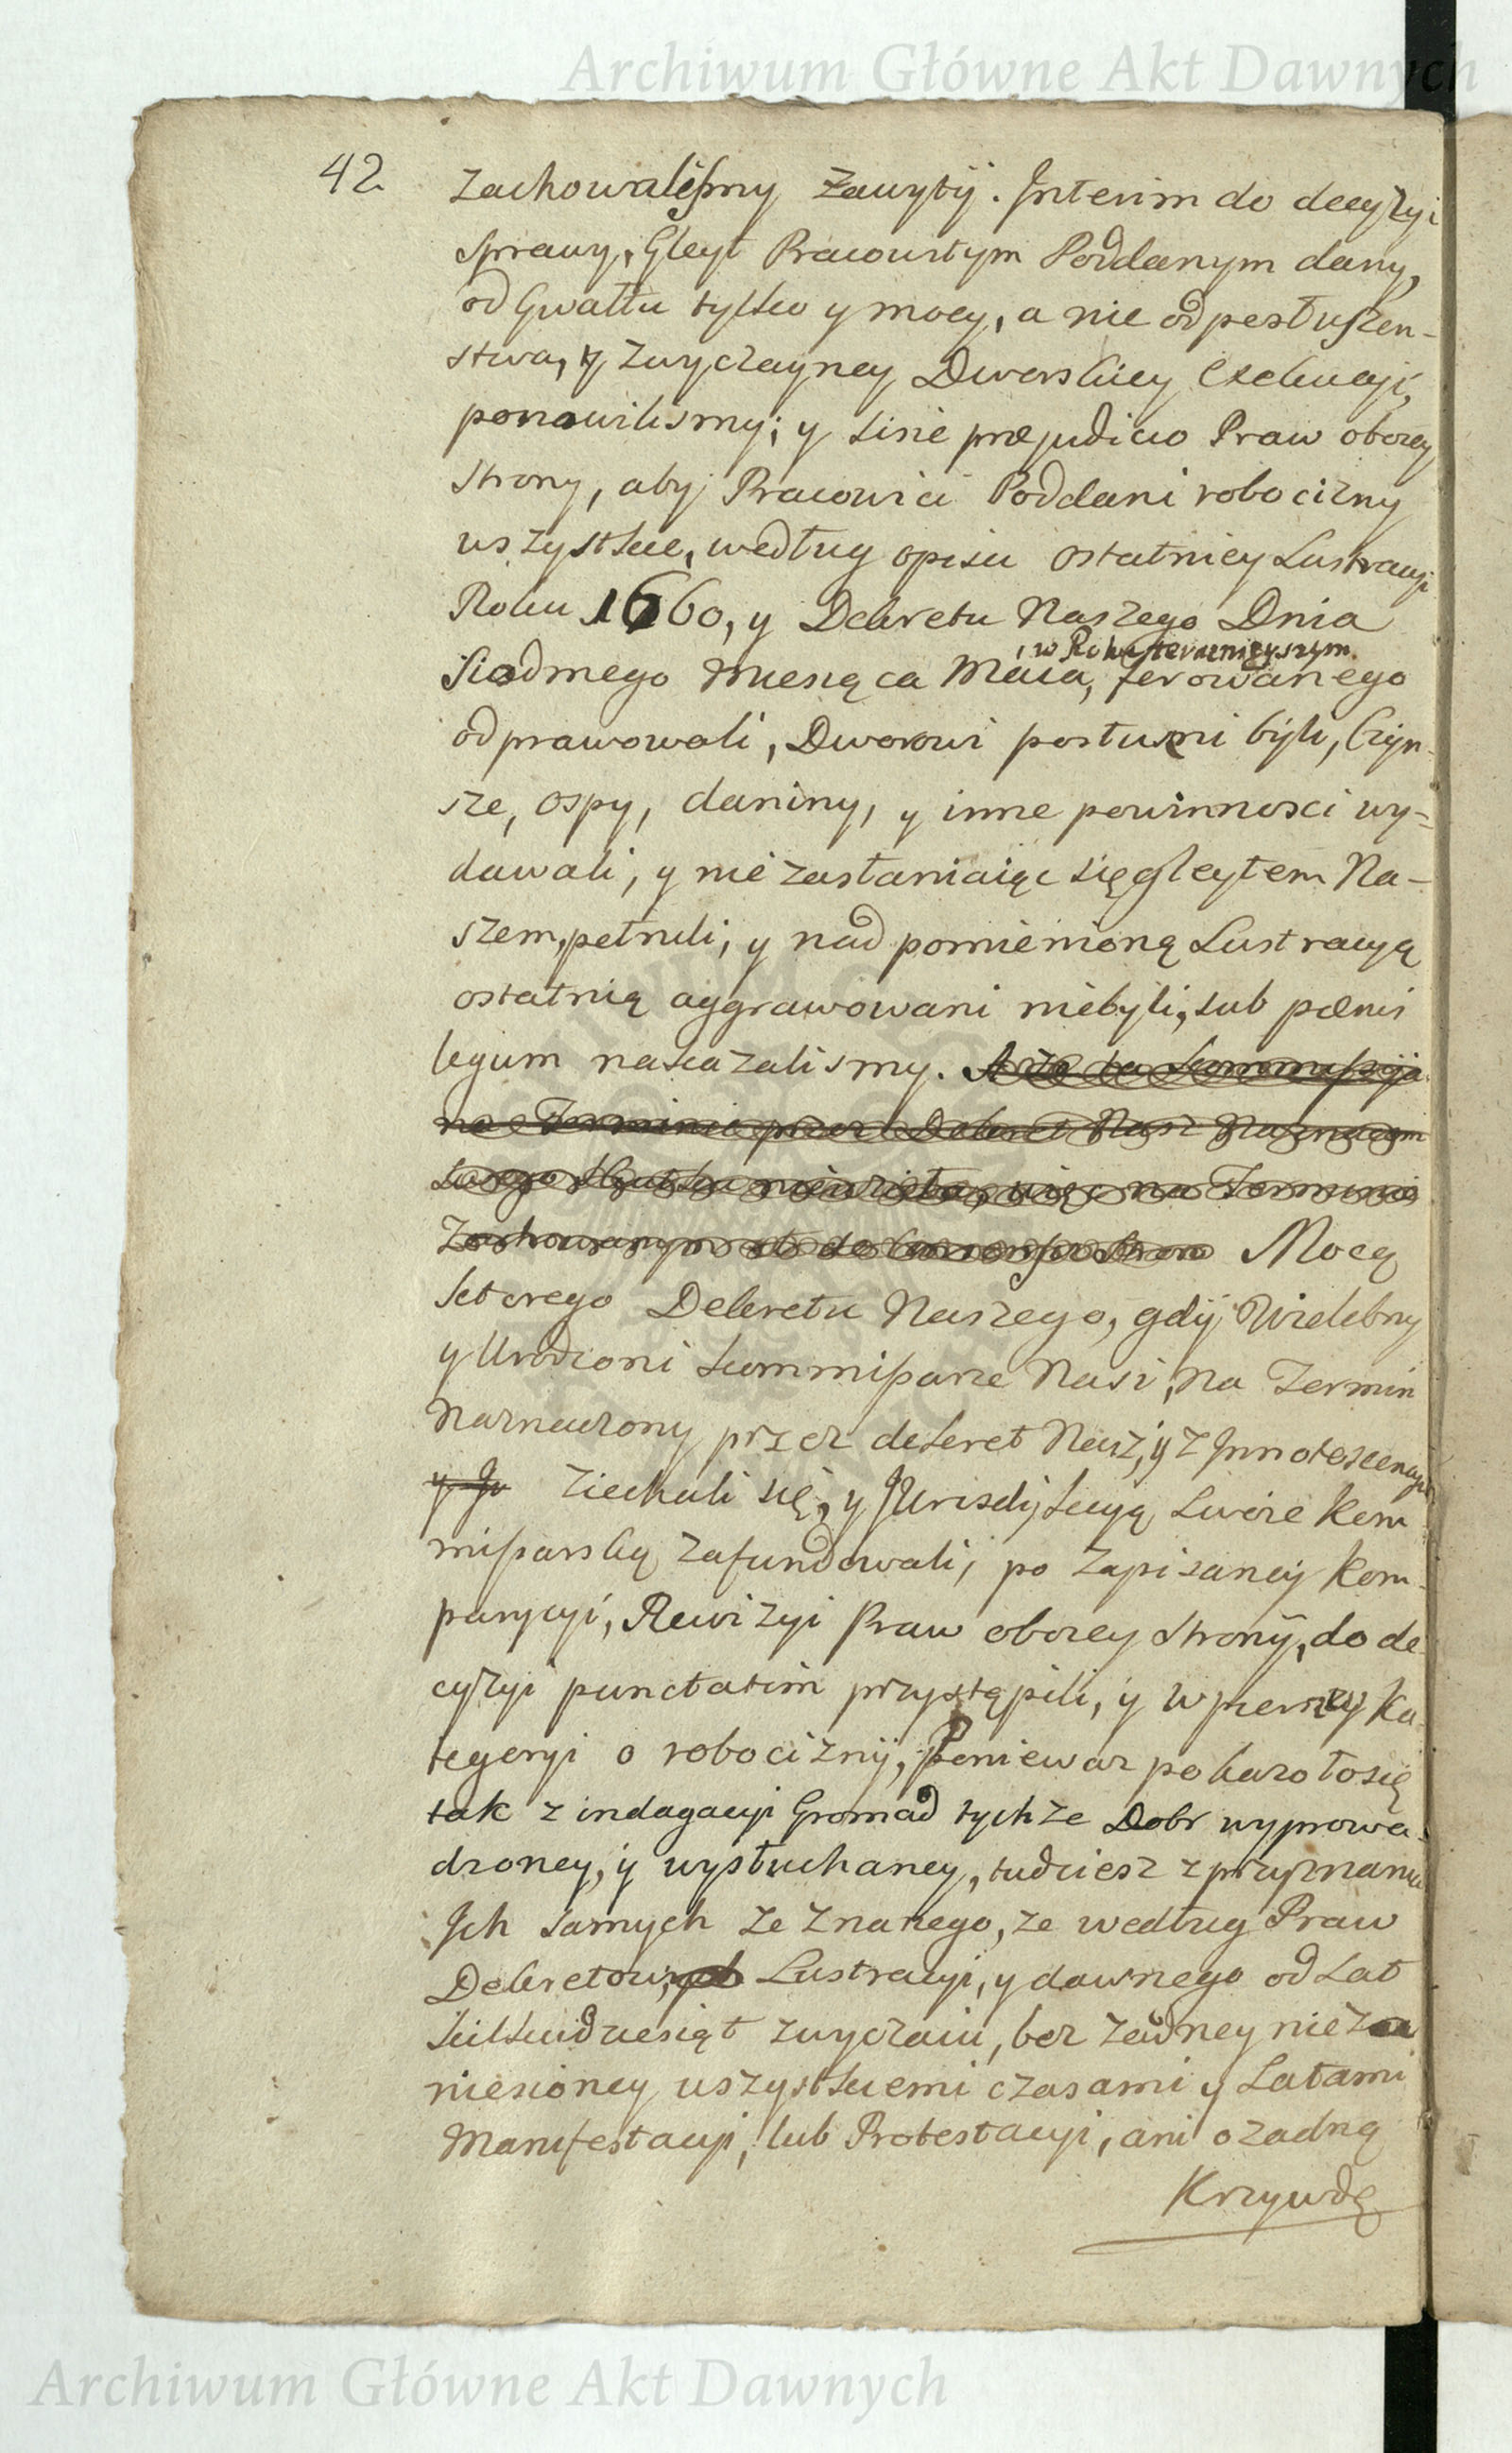 Archiwum Główne Akt Dawnych
42.
zachowaliśmy zawyty. Interim do decyzyi
sprawy, Gleyt Pracowitym Poddanym dany,
od Gwałtu tylko y mocy, a nie od posłuszen-
stwa, y zwyczayney Dworskiey Exekucyi,
ponowilismy; y sine præjudicio Praw oboiey
strony, aby Pracowici Poddani robocizny
wszystkie, według opisu ostatniey Lustracyi
Roku 1660, y Dekretu Naszego Dnia
, w Roku teraznieyszym
Siodmego Miesiąca Maia, ferowanego
odprawowali, Dworowi posłuszni byli, Czyn-
sze, ospy, daniny, y inne powinnosci wy-
dawali, y nie zasłaniaiąc się gleytem Na-
szem, pełnili, y nad pomienioną Lustracyą
ostatnią aggrawowani niebyli, sub pœnis
legum nakazalismy. A że ta Kommissyia
na Terminie przez Dekret Nasz Naznaczonym
swego skutku niewzieła, więc na Terminie
Zachowanym Mocą
ktorego Dekretu Naszego, gdy Wielebny
y Urodzeni Kommissarze Nasi, na Termin
Naznaczony przez dekret Nasz, y z Innotescencyi
y In ziechali się, y Jurisdykcyą swoię Kom
missarską zafundowali, po zapisaney Kom-
parycyi, Rewizyi Praw oboiey strony, do de-
cyzyi punctatim przystąpili, y w pierwszey Ka-
tegoryi o robocizny, Poniewaz pokazało się
tak z indagacyi Gromad tychze Dobr wyprowa-
dzoney, y wysłuchaney, tudziesz z przyznania
Ich samych ze znanego, ze według Praw
Dekretow, Lustracyi, y dawnego od Lat
kilkudziesiąt zwyczaiu, bez zadney nieza
niesioney wszystkiemi czasami y Latami
Manifestacyi, lub Protestacyi, ani o zadną
Krzywdę
Archiwum Główne Akt Dawnych